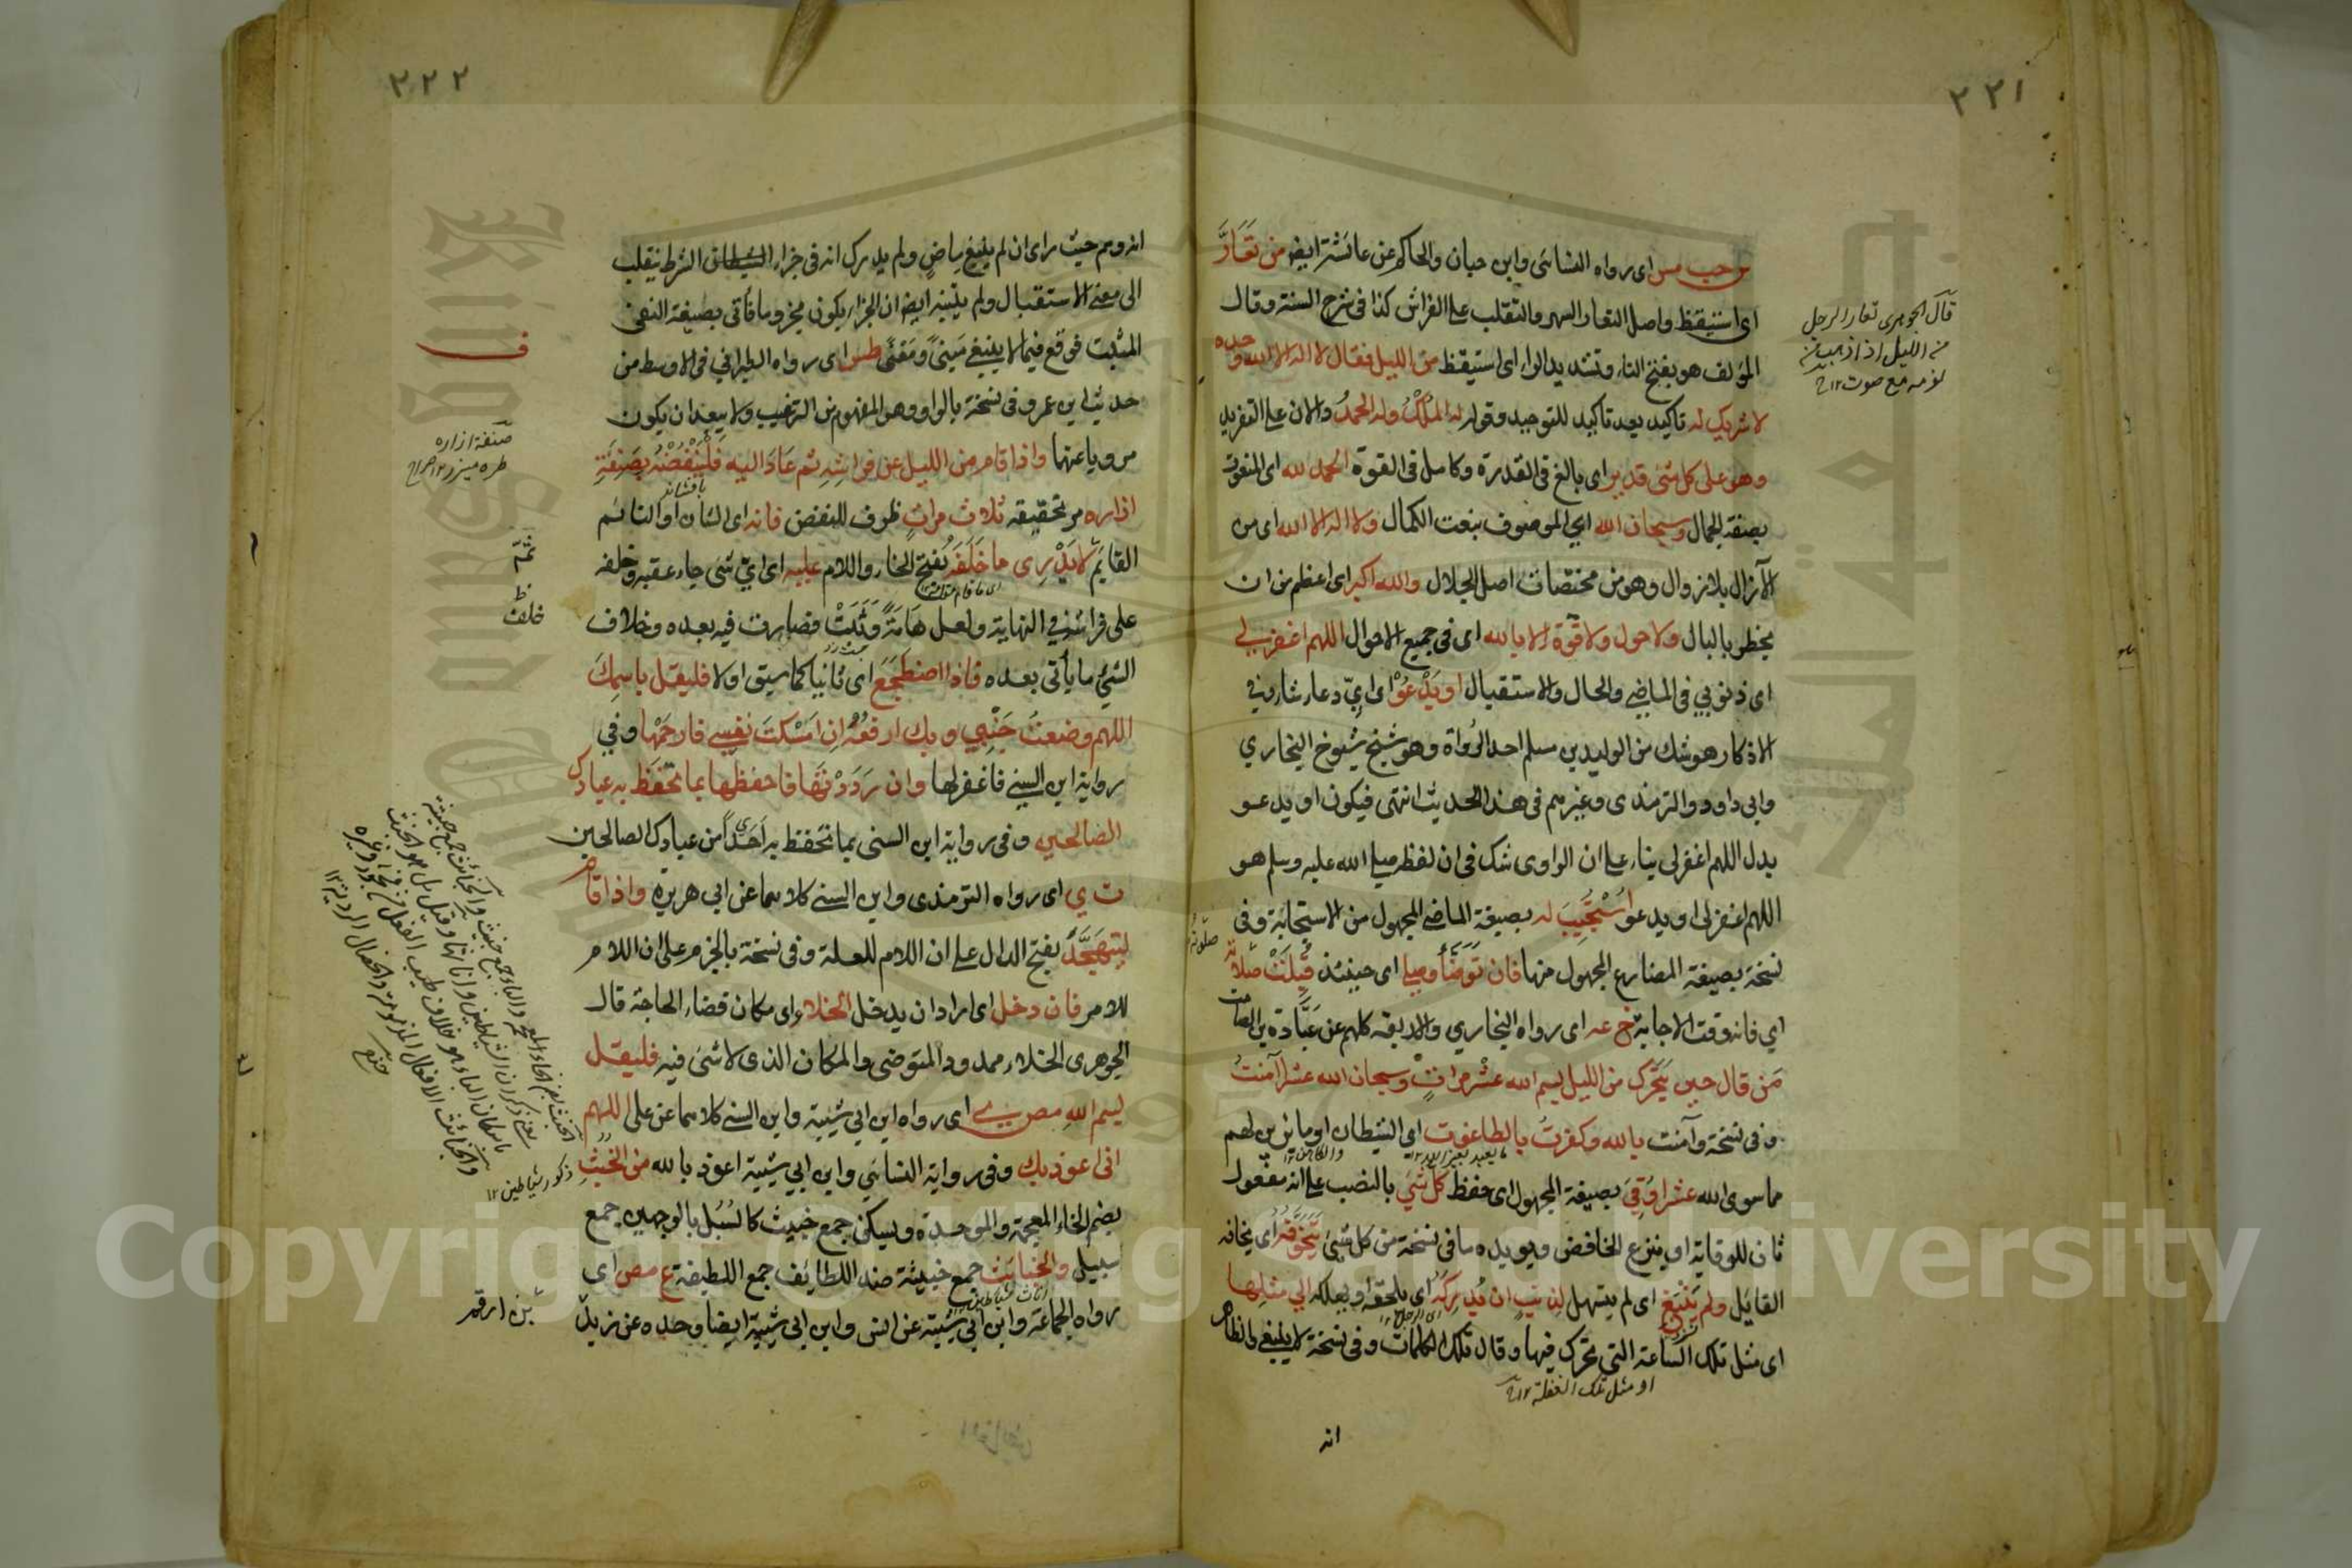 ٢٢١
س حب مس اى رواه النسائى وابن حبان والحاكم عن عائشة ايضا من تَعَارَّ
اى استيقظ واصل التعار السهر والتقلب على الفراش كذا فى شرح السنة وقال
المؤلف هو بفتح التاء وتشديد الراء اى استيقظ من الليل فقال لا اله الا الله وحده
لا شريك له تاكيد بعد تاكيد للتوحيد وقوله له المُلْكُ وله الحمدُ والان على التفريد
وهو على كل شئ قدير اى بالغ فى القدرة وكامل فى القوة الحمد لله اى المنعوت
بصفة الجمال وسبحان الله اى الموصوف بنعت الكمال ولا اله الا الله اى من
لا زال بلا زوال وهو من مختصات اصل الجلال والله اكبر اى اعظم من ان
يخطر بالبال ولا حول ولا قوّة الا بالله اى فى جميع الاحوال اللهم اغفر لي
اى ذنوبي فى الماضي والحال والاستقبال او يَدْعُوْ اى ايّ دعاء شاء وفي
الاذكار هو شك من الوليد بن مسلم احد الرُواة وهو شيخ شيوخ البخاري
وابى داود والترمذى وغيرهم فى هذا الحديث انتهى فيكون او يدعو
بدل اللهم اغفرلى بناء على ان الراوى شك فى ان لفظ صلى الله عليه وسلم هو
اللهم اغفرلى او يدعو اسْتُجِيْبَ له بصيغة الماضي المجهول من الاستجابة وفى
نسخة بصيغة المضارع المجهول منها فان تَوَضَّأَ وصلى اى حينئذ قُبِلَتْ صلاته
اي فانه وقت الاجابة خ عه اى رواه البخاري والاربعة كلهم عن عُبَادة بن الصامت
مَن قال حين يَتحَرَّك من الليل بسم الله عشر مراتٍ وسبحان الله عشرا آمنتُ
وفى نسخة وآمنت بالله وكفرتُ بالطاغوت اى الشيطان او ما يزين لهم
مما سوى الله عشرا وُقِيَ بصيغة المجهول اى حفظ كل شئ بالنصب على انه مفعول
ثان للوقاية او بنزع الخافض ويويده ما فى نسخة من كل شئ يَتَخوَّفه اى يخافه
القائل ولم يَنْبَغِ اى لم يتسهل لِذنبٍ ان يُدرِكَهُ اى يلحقه او يهلكه الى مثلها
اى مثل تلك الساعة التي تحرك فيها وقال تلك الكلمات وفى نسخة لا ينبغى والظاهر
او مثل تلك الغفلة ١٢
انه
قال الجوهرى تعار الرجل
من الليل اذا هب من
نومه مع صوت ١٢
٢٢٢
انه وهم حيث راى ان لم ينبغ ماضٍ ولم يدرك انه فى جزاء الشيطان الشرط ينقلب
الى معنى الاستقبال ولم يتنبه ايضا ان الجزاء يكون مجزوما فاتى بصيغة النفى
المثبت فوقع فيما لا ينبغي مَبنىً ومَعنىً طس اى رواه الطبراني فى الاوسط من
حديث ابن عمرو وفى نسخة بالواو وهو المفهوم من الترغيب ولا يبعد ان يكون
مرويا عنهما واذا قام من الليل عن فراشِهِ ثم عَادَ اليه فَلْيَنْفُضْهُ بِصَنِفَةِ
ازاره مر تحقيقه ثلاث مراتٍ ظرف للنفض فانه اى الشان او النائم
القائم لا يَدْرِى ما خَلَفَه بفتح الخاء واللام عليه اى ايّ شئ جاء عقبه وخلفه
على فراشه في النهاية ولعل هَامَةً دَبَّتْ فصارت فيه بعده وخلاف
الشئ ما يأتى بعده فاذا اضطجَعَ اى ثانيا كما سبق اولا فليقل باسمِكَ
اللهم وضعتُ جَنْبِي وبك ارفعُهُ اِن اَمْسَكتَ نفسي فارحَمْها وفي
رواية ابن السني فاغفرلها وان رَدَدْتَها فاحفظها بما تحفظ به عبادك
الصالحين وفى رواية ابن السنى بما تحفظ به اَحَداً من عبادك الصالحين
ت ي اى رواه الترمذى وابن السنى كلاهما عن ابي هريرة واذا قام
لِيَتهَجَّدَ بفتح الدال على ان اللام للعلة وفى نسخة بالجزم على ان اللام
للامر فان دخل اى اراد ان يدخل الخلاء اى مكان قضاء الحاجة قال
الجوهرى الخلاء ممدود المتوضى والمكان الذى لا شئ فيه فليقل
بسم اللهِ مص ي اى رواه ابن ابى شيبة وابن السنى كلاهما عن على اللهم
انى اعوذ بك وفى رواية النسائى وابن ابي شيبة اعوذ بالله من الخُبُثِ
بضم الخاء المعجمة والموحدة ويسكن جمع خبيث كالسُبُل بالوجهين جمع
سبيل والخبائث جمع خبيثة ضد اللطائف جمع اللطيفة ع مص اى
رواه الجماعة وابن ابى شيبة عن انس وابن ابى شيبة ايضا وحده عن زيد
بن ارقم
ف
صنفة ازاره
خلف
ذكور شياطين ١٢